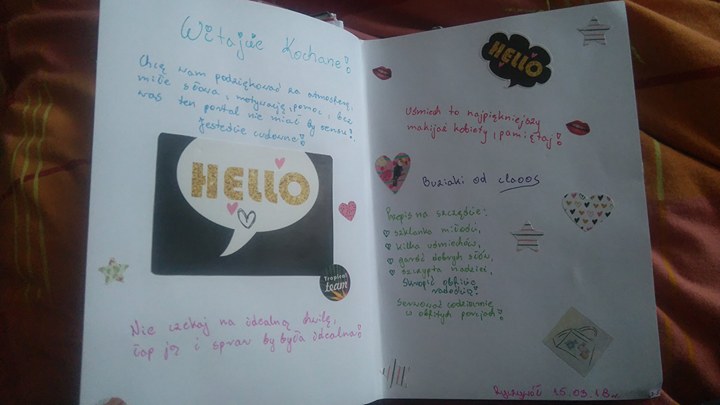 Witajcie Kochane!
Chcę wam podziękować za atmosferę,
miłe słowa, motywację, pomoc, bez
was ten portal nie miał by sensu!
Jesteście cudowne!
HELLO
Tropical
team
Nie czekaj na idealną chwilę,
łap ją i spraw by była idealna!
HELLO
Uśmiech to najpiękniejszy
makijaż kobiety, pamiętaj!
Buziaki od claoos
Przepis na szczęście:
szklanka miłości,
kilka uśmiechów,
garść dobrych słów,
szczypta nadziei,
Serwować codziennie
w obfitych porcjach!
15.03.18r.